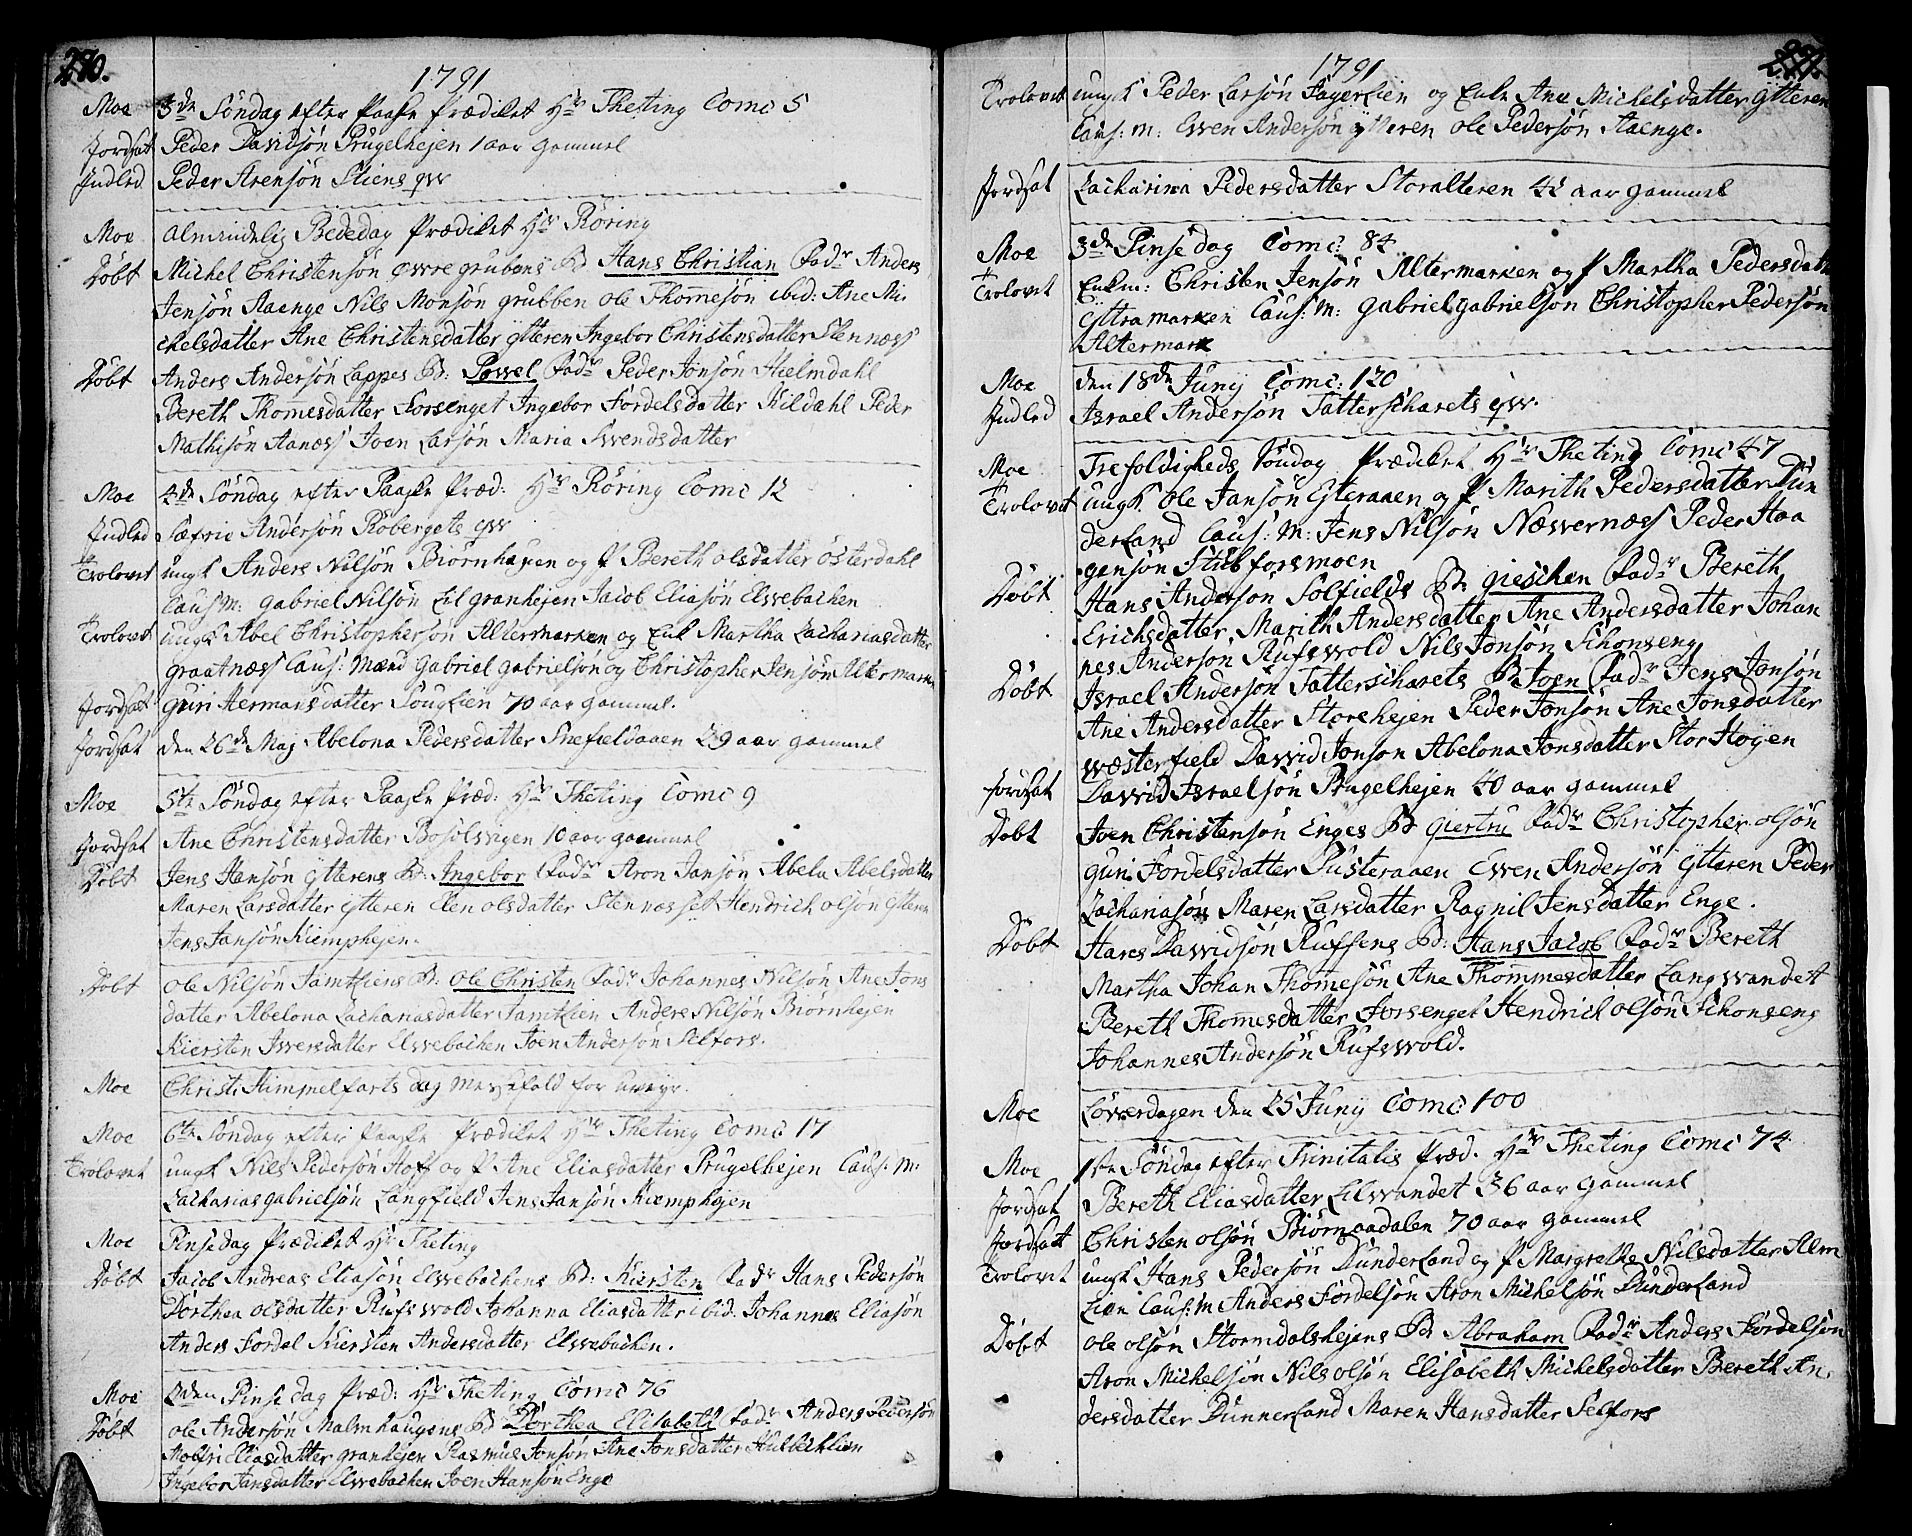 270.
1791
Moe 3de Söndag efter Paaske Prædiket Hr Theting Comc 5
Jordsat Peder Davidsön Prugelhejen 1 aar gammel
Indled Peder Arensön Stiens qv
Moe Almindelig Bededag Prædiket Hr Röring
Döbt Michel Christensön Övregrubens B Hans Christian Fadr Anders
Jensön Aaenge Nils Monsön grubben ole Thomesön ibid: Ane Mi-
chelsdatter Ane Christensdatter ytteren Ingebor Christensdatter Stennæss
Döbt Anders Andersön Lappes B: Povel Fadr Peder Jonsön Hielmdahl
Bereth Thomesdatter Forsenget Ingebor Fordelsdatter Kildahl Peder
Mathisön Aanæss Joen Larsön Maria Svendsdatter
Moe 4de Söndag efter Paaske Præd: Hr Röring Comc 12
Indled Sæfrie Andersön Röbergets qv
Trolovet ungk Anders Nilsön Biörnhejen og P Bereth olsdatter österdahl
Caus M: gabriel Nilsön Lilgranhejen Jacob Eliasön Elvebacken
Trolovet ungk Abel Christophersön Altermarken og Enk Martha Zachariasdatter
graatnæss Caus: Mænd Gabriel gabrielsön og Christopher Jensön Altermarken
Jordsat guri Hermansdatter Souglien 70 aar gammel.
Jordsat den 26de Maj Abelona Pedersdatter Snefieldaaen 29 aar gammel
Moe 5te Söndag efter Paaske Præd: Hr Theting Comc 9
Jordsat Ane Christensdatter Bosolvigen 10 aar gammel
Döbt Jens Hansön ytterens B: Ingebor Fadr Aron Jansön Abela Abelsdatter
Maren Larsdatter ytteren Elen olsdatter Stennæsset Hendrich olsön ytteren
Jens Jansön Kiemphejen.
Döbt ole Nilsön Jamtliens B: ole Christen Fadr Johannes Nilsön Ane Jons
datter Abelona Zachariasdatter Jamtlien Anders Nilsön Biörnhejen
Kiersten Iversdatter Elvebacken Joen Andersön Selfors.
Moe Christi Himmelfarts dag Messefald for uveyr.
Moe 6te Söndag efter Paaske Prædiket Hr Theting Comc 17
Trolovet ungk Nils Pedersön Hoff og P Ane Eliasdatter Prugelhejen Caus: M:
Zacharias gabrielsön Langfield Jens Jansön Kiemphejen
Moe Pinsedag Prædiket Hr Theting
Döbt Jacob Andreas Eliasön Elvebackens B: Kiersten Fadr Hans Pedersön
Dorthea olsdatter Rufsvold Johanna Eliasdatter ibid: Johannes Eliasön
Anders Fordel Kiersten Andersdatter Elvebacken.
Moe 2den Pinsedag Præd: Hr Theting Comc 76
Döbt ole Andersön Malmhaugens B Dorthea Elisabeth Fadr Anders Pedersön
Eliasdatter granhejen Rasmus Jonsön Ane Jonsdatter
Ingebor Jansdatter Elvebacken Joen Hansön Enge
1791
Trolovet ungk Peder Larsön Fagerlien og Enke Ane Michelsdatter ytteren
Caus: M: Even Andersön ytteren ole Pedersön Aaenge.
Jordsat Zacharina Pedersdatter Storalteren 42 aar gammel
Moe 3de Pinsedag Comc: 84
Trolovet Enkm: Christen Jensön Altermarken og P Martha Pedersdatt
yttramarken Caus: M: gabriel gabrielsön Christopher Pedersön
Altermark
Moe den 18de Junij Comc: 120
Indled Israel Andersön Tatterscharets qv.
Moe Trefoldigheds Söndag Prædiket Hr Theting Comc 47
Trolovet ungk Ole Jansön Ytteraaen og P Marith Pedersdatter Dun
derland Caus: M: Jens Nilsön Næsvernæss Peder Haa
gensön Stubforsmoen
Döbt Hans Andersön Solfields B gieschen Fadr Bereth
Erichsdatter, Marith Andersdatter Ane Andersdatter Johan
nes Anderson Rufsvold Nils Jonsön Schonseng
Döbt Israel Andersön Tatterscharets B Joen Fadr Jens Jonsön
Ane Andersdatter Storehejen Peder Jonsön Ane Jonsdatter
væsterfield David Jonson Abelona Jonsdatter Stor Högen
Jordsat David Israelsön Prugelhejen 40 aar gammel
Döbt Joen Christensön Enges B giertru Fadr Christopher olsön
guri Fordelsdatter Pusteraaen Even Andersön ytteren Peder
Zachariasön Maren Larsdatter Ragnil Jensdatter Enge.
Döbt Hans Davidsön Ruffsens B: Hans Jacob Fadr Bereth
Martha Johan Thomesön Ane Thommesdatter Langvandet
Bereth Thomesdatter Forsenget Hendrich olsön Schonseng
Johannes Andersön Rufsvold.
Moe Löverdagen den 25 Junij Comc 100
Moe 1ste Söndag efter Trinitatis Præd. Hr Theting Comc 74
Jordsat Bereth Eliasdatter Lilvandet 36 aar gammel
Jordsatt Christen olsön Biörnaadalen 70 aar gammel
Trolovet ungk Hans Pedersön Dunderland og P Margrethe Nilsdatter Alm
lien Caus: M Anders Fordelsön Aron Michelsön Dunderland
Döbt ole olsön Stormdalshejens B Abraham Fadr Anders Fordelsön
Aron Michelsön Nils olsön Elisabeth Michelsdatter Bereth An-
dersdatter Dunnerland Maren Hansdatter Selfors